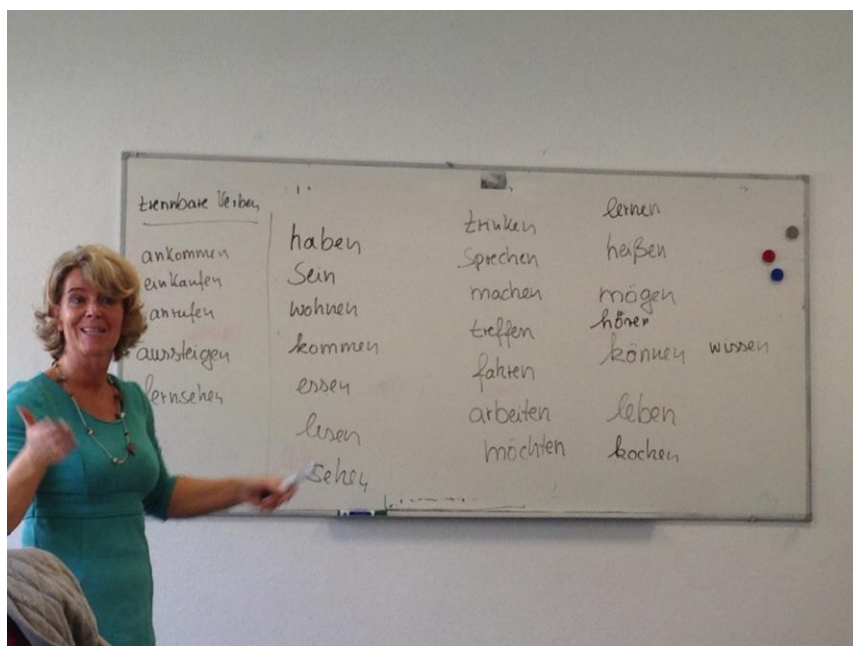 trennbare Verben
ankommen
einkaufen
anrufen
aussteigen
fernsehen
haben
sein
wohnen
kommen
essen
lesen
sehen
trinken
sprechen
machen
treffen
fahren
arbeiten
möchten
lernen
heißen
mögen
hören
können
leben
kochen
wissen